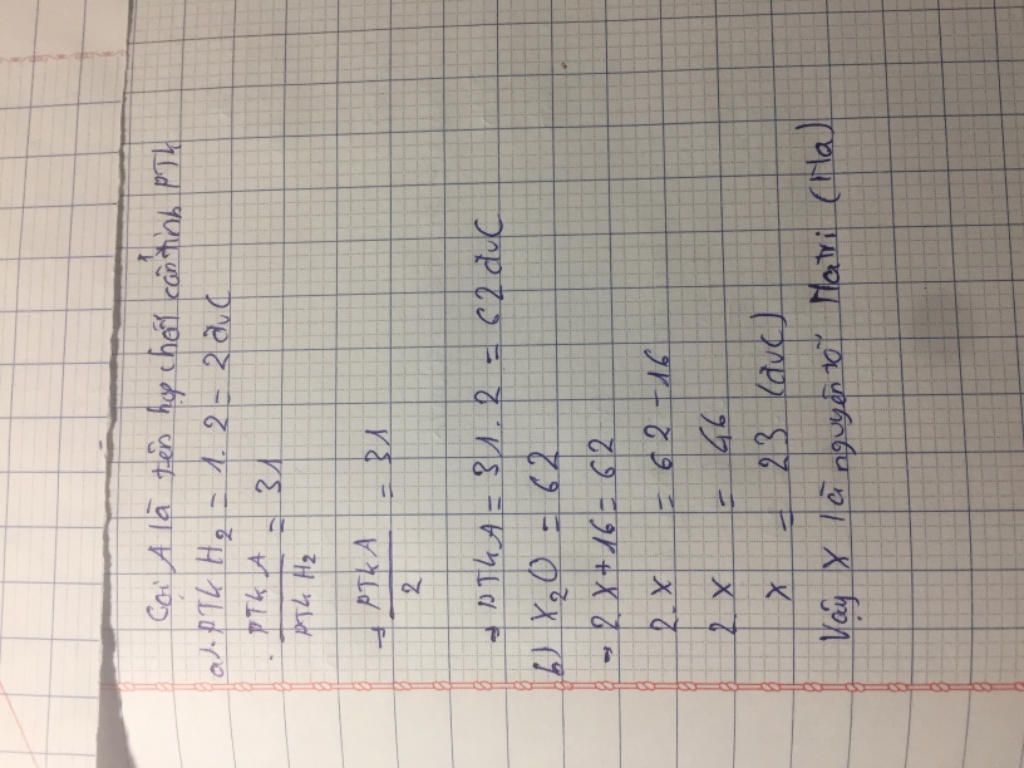 Gọi A là tên hợp chất cần tính PTK
a). PTK H2 = 1. 2 = 2 đvC
. PTK A / PTK H2 = 31
→ PTK A / 2 = 31
→ PTK A = 31. 2 = 62 đvC
b) X2O = 62
→ 2. X + 16 = 62
2. X = 62 - 16
2 X = 46
X = 23 (đvC)
Vậy X là nguyên tố Natri (Na)